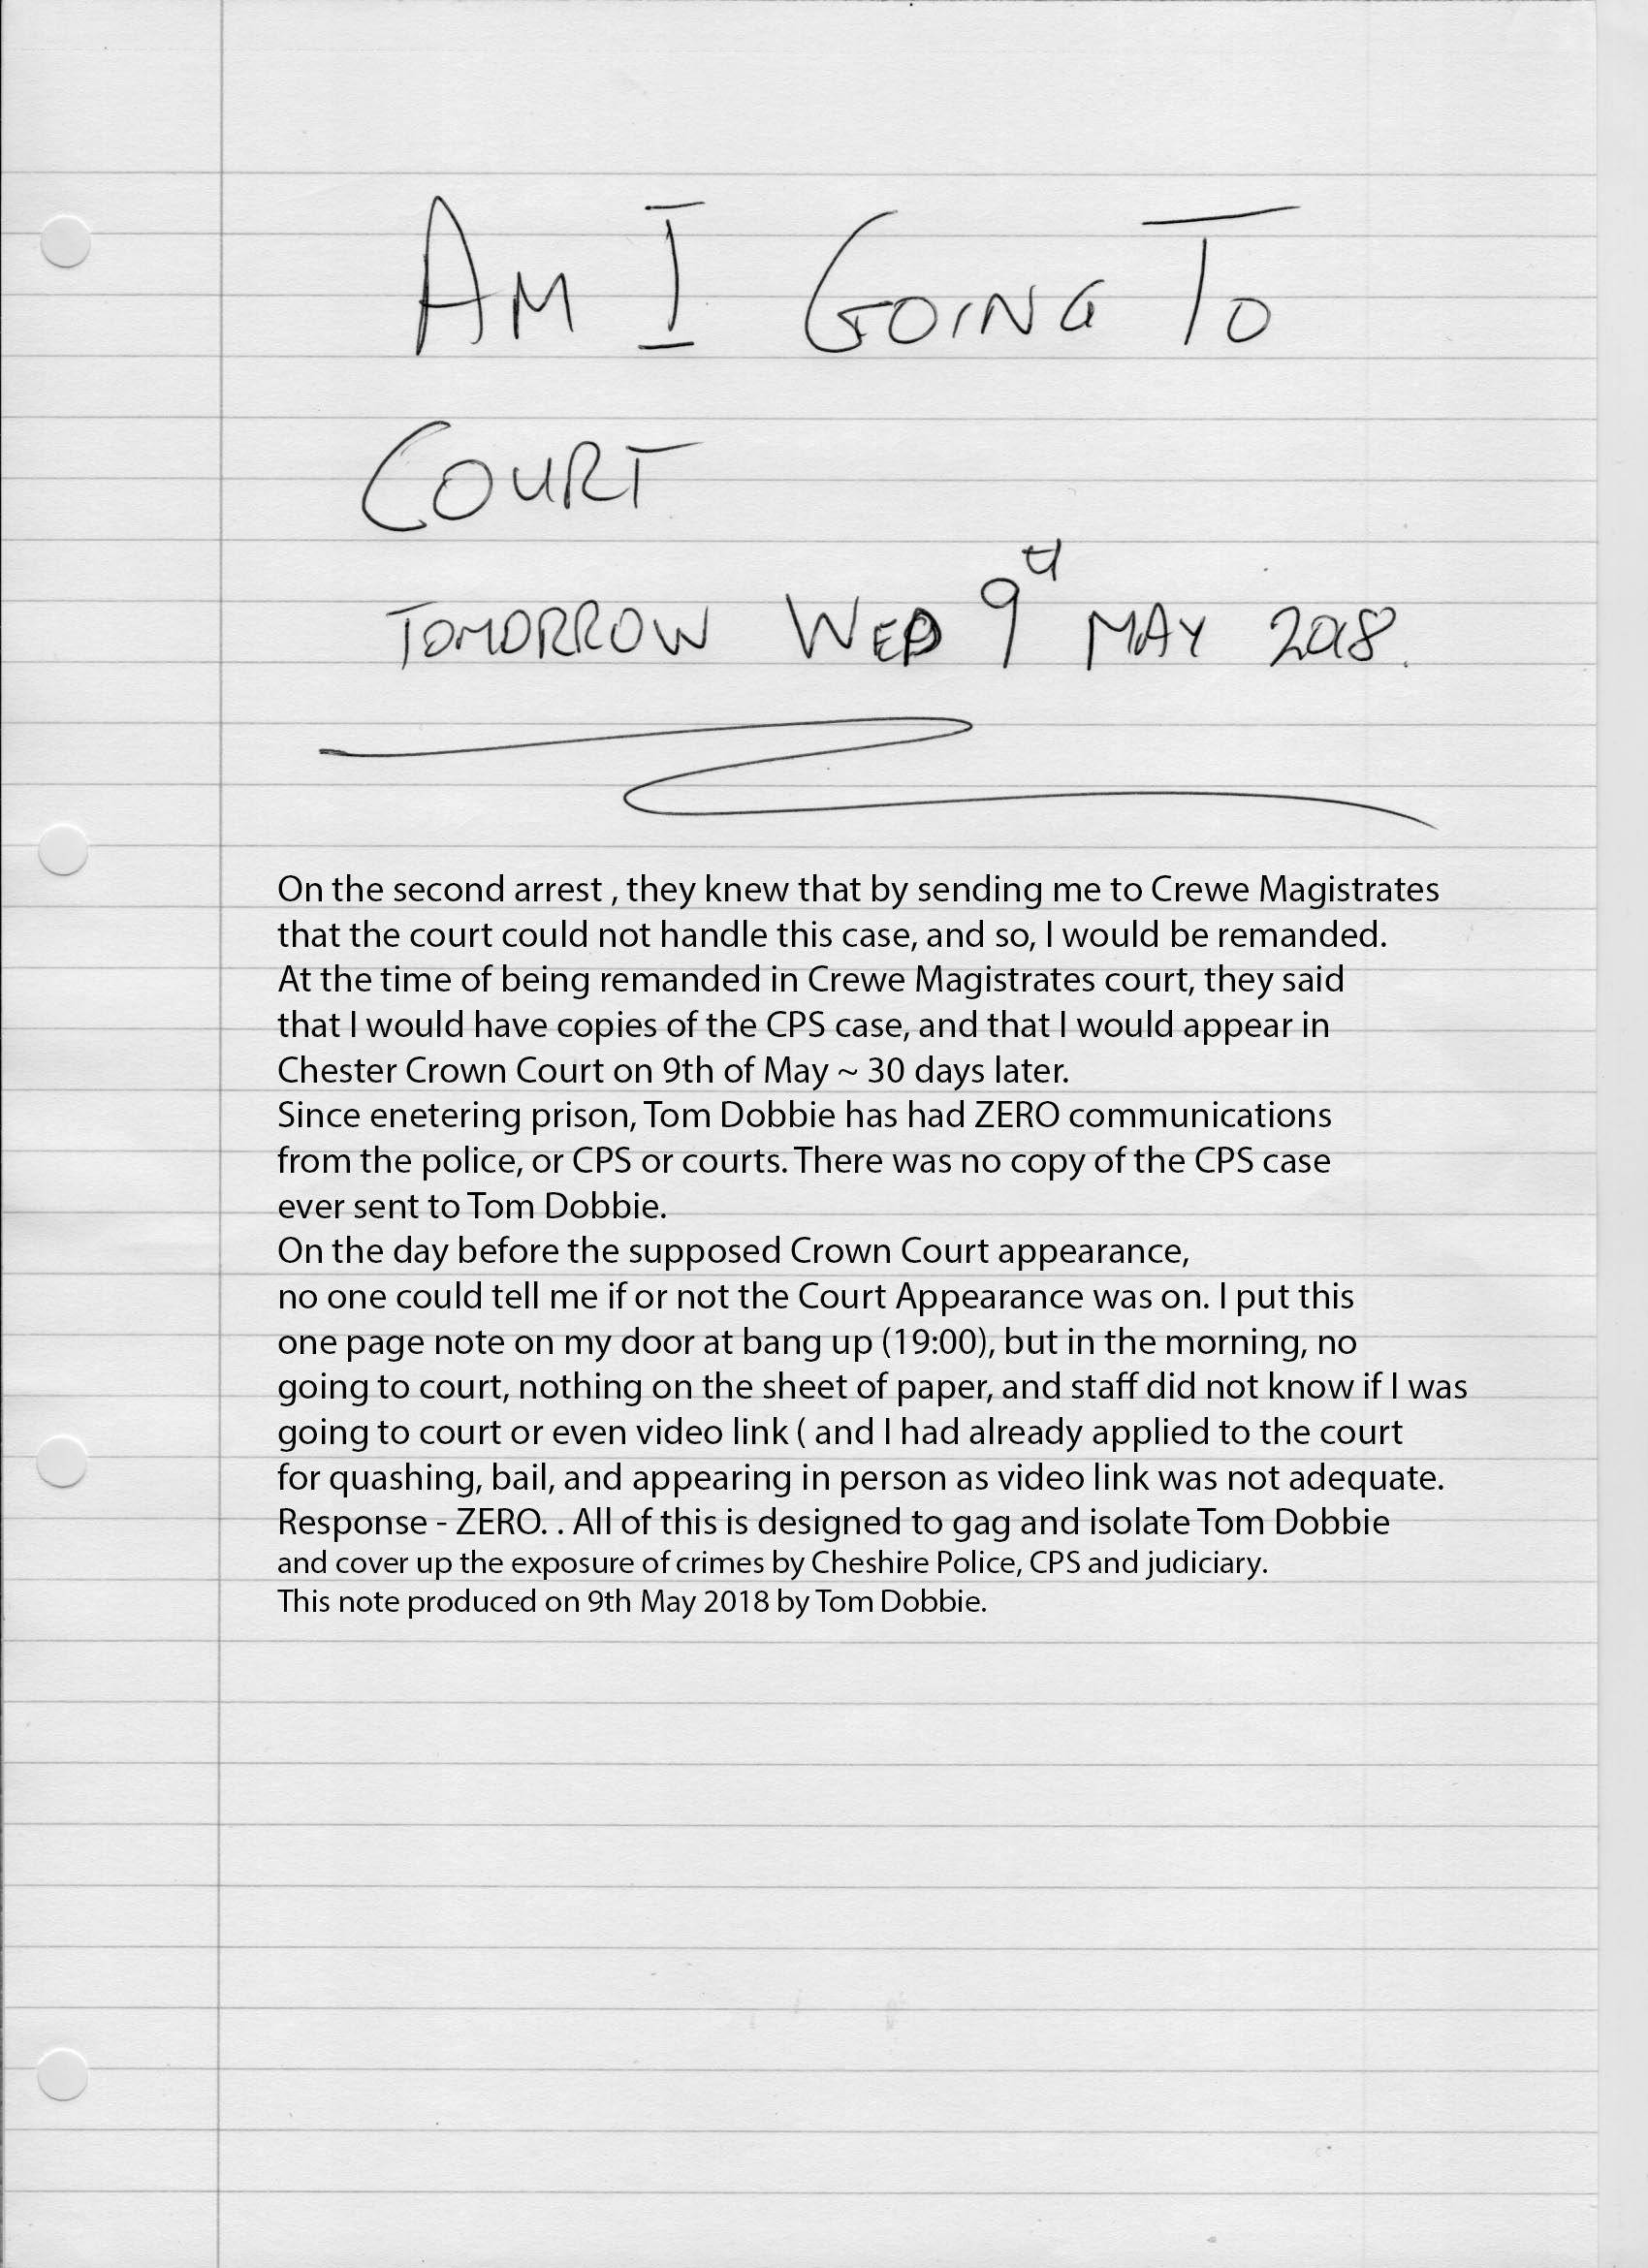 AM I GOING TO
COURT
TOMORROW WED 9th MAY 2018.
On the second arrest , they knew that by sending me to Crewe Magistrates
that the court could not handle this case, and so, I would be remanded.
At the time of being remanded in Crewe Magistrates court, they said
that I would have copies of the CPS case, and that I would appear in
Chester Crown Court on 9th of May ~ 30 days later.
Since enetering prison, Tom Dobbie has had ZERO communications
from the police, or CPS or courts. There was no copy of the CPS case
ever sent to Tom Dobbie.
On the day before the supposed Crown Court appearance,
no one could tell me if or not the Court Appearance was on. I put this
one page note on my door at bang up (19:00), but in the morning, no
going to court, nothing on the sheet of paper, and staff did not know if I was
going to court or even video link ( and I had already applied to the court
for quashing, bail, and appearing in person as video link was not adequate.
Response - ZERO. . All of this is designed to gag and isolate Tom Dobbie
and cover up the exposure of crimes by Cheshire Police, CPS and judiciary.
This note produced on 9th May 2018 by Tom Dobbie.